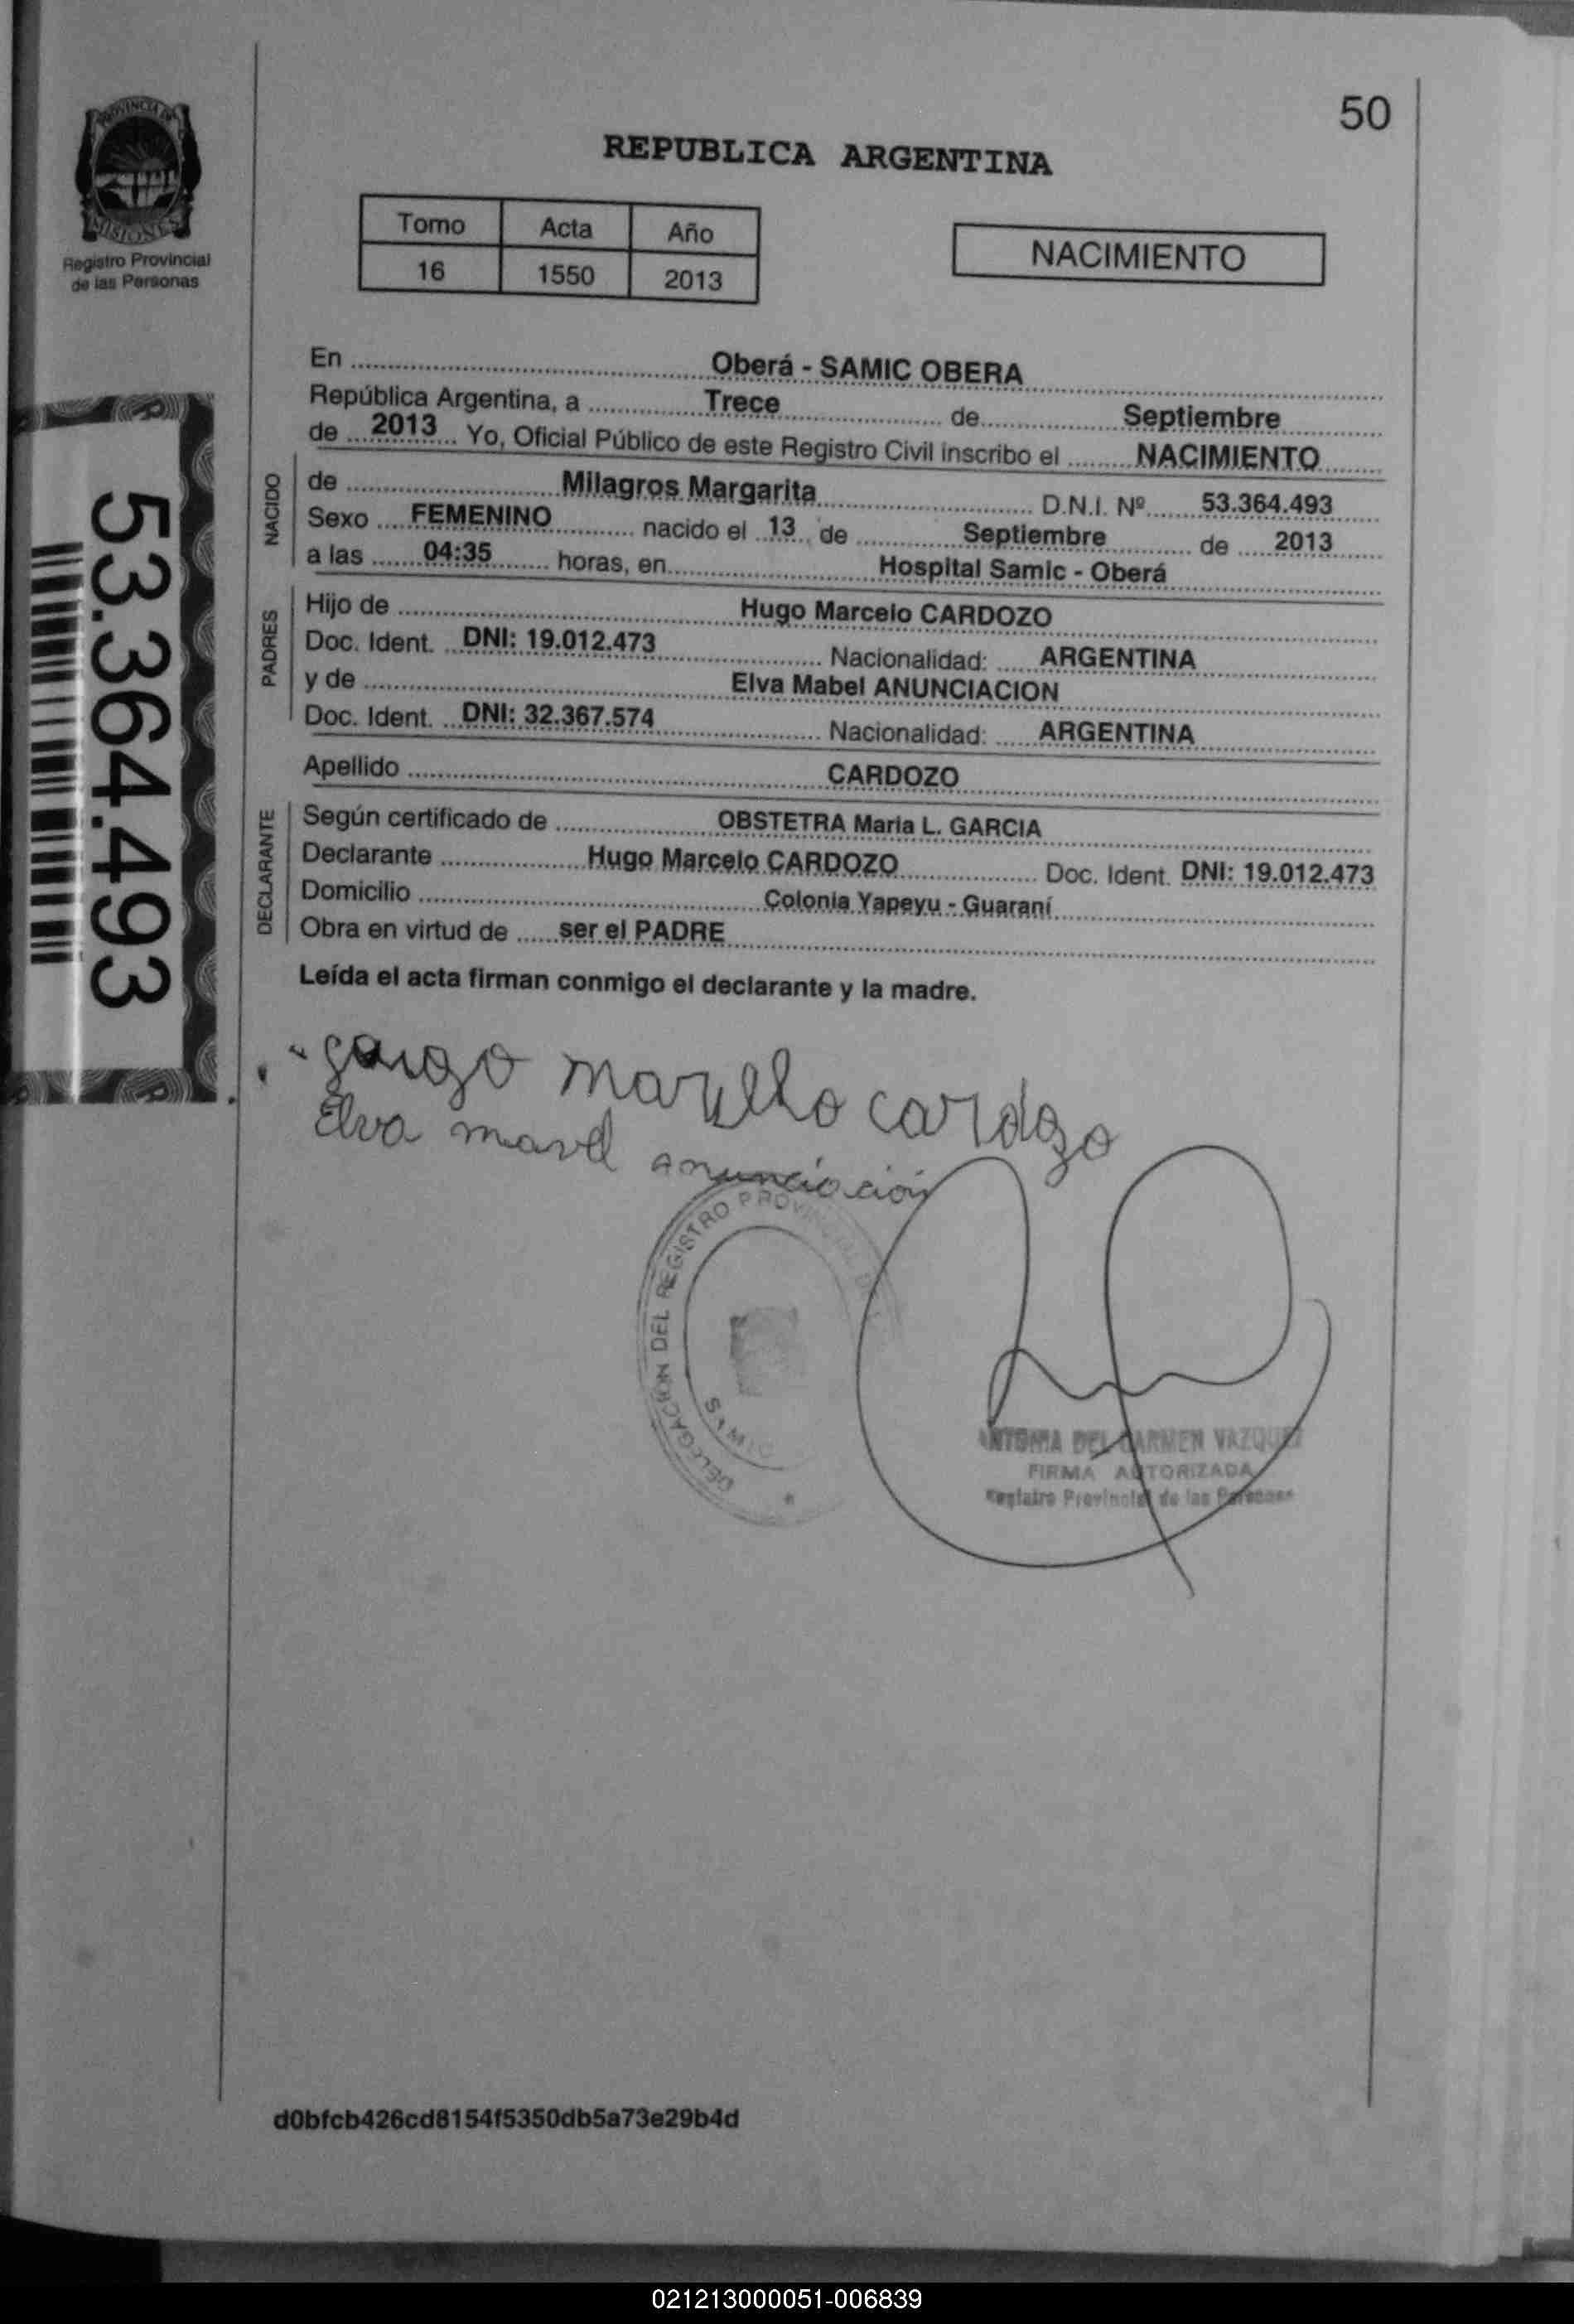 50
PROVINCIA DE
MISIONES
Registro Provincial
de las Personas
REPUBLICA ARGENTINA
Tomo Acta Año
16 1550 2013
NACIMIENTO
En Oberá - SAMIC OBERA
República Argentina, a Trece de Septiembre
de 2013 Yo, Oficial Público de este Registro Civil inscribo el NACIMIENTO
NACIDO
de Milagros Margarita D.N.I. Nº 53.364.493
Sexo FEMENINO nacido el 13 de Septiembre de 2013
a las 04:35 horas, en Hospital Samic - Oberá
PADRES
Hijo de Hugo Marcelo CARDOZO
Doc. Ident. DNI: 19.012.473 Nacionalidad: ARGENTINA
y de Elva Mabel ANUNCIACION
Doc. Ident. DNI: 32.367.574 Nacionalidad: ARGENTINA
Apellido CARDOZO
DECLARANTE
Según certificado de OBSTETRA Maria L. GARCIA
Declarante Hugo Marcelo CARDOZO Doc. Ident. DNI: 19.012.473
Domicilio Colonia Yapeyu - Guaraní
Obra en virtud de ser el PADRE
Leída el acta firman conmigo el declarante y la madre.
53.364.493
cardozo
Elva mavel anunciación
DELEGACION DEL REGISTRO PROVINCIAL DE
SAMIC
ANTONIA DEL CARMEN VAZQUEZ
FIRMA AUTORIZADA
Registro Provincial de las Personas
d0bfcb426cd8154f5350db5a73e29b4d
021213000051-006839